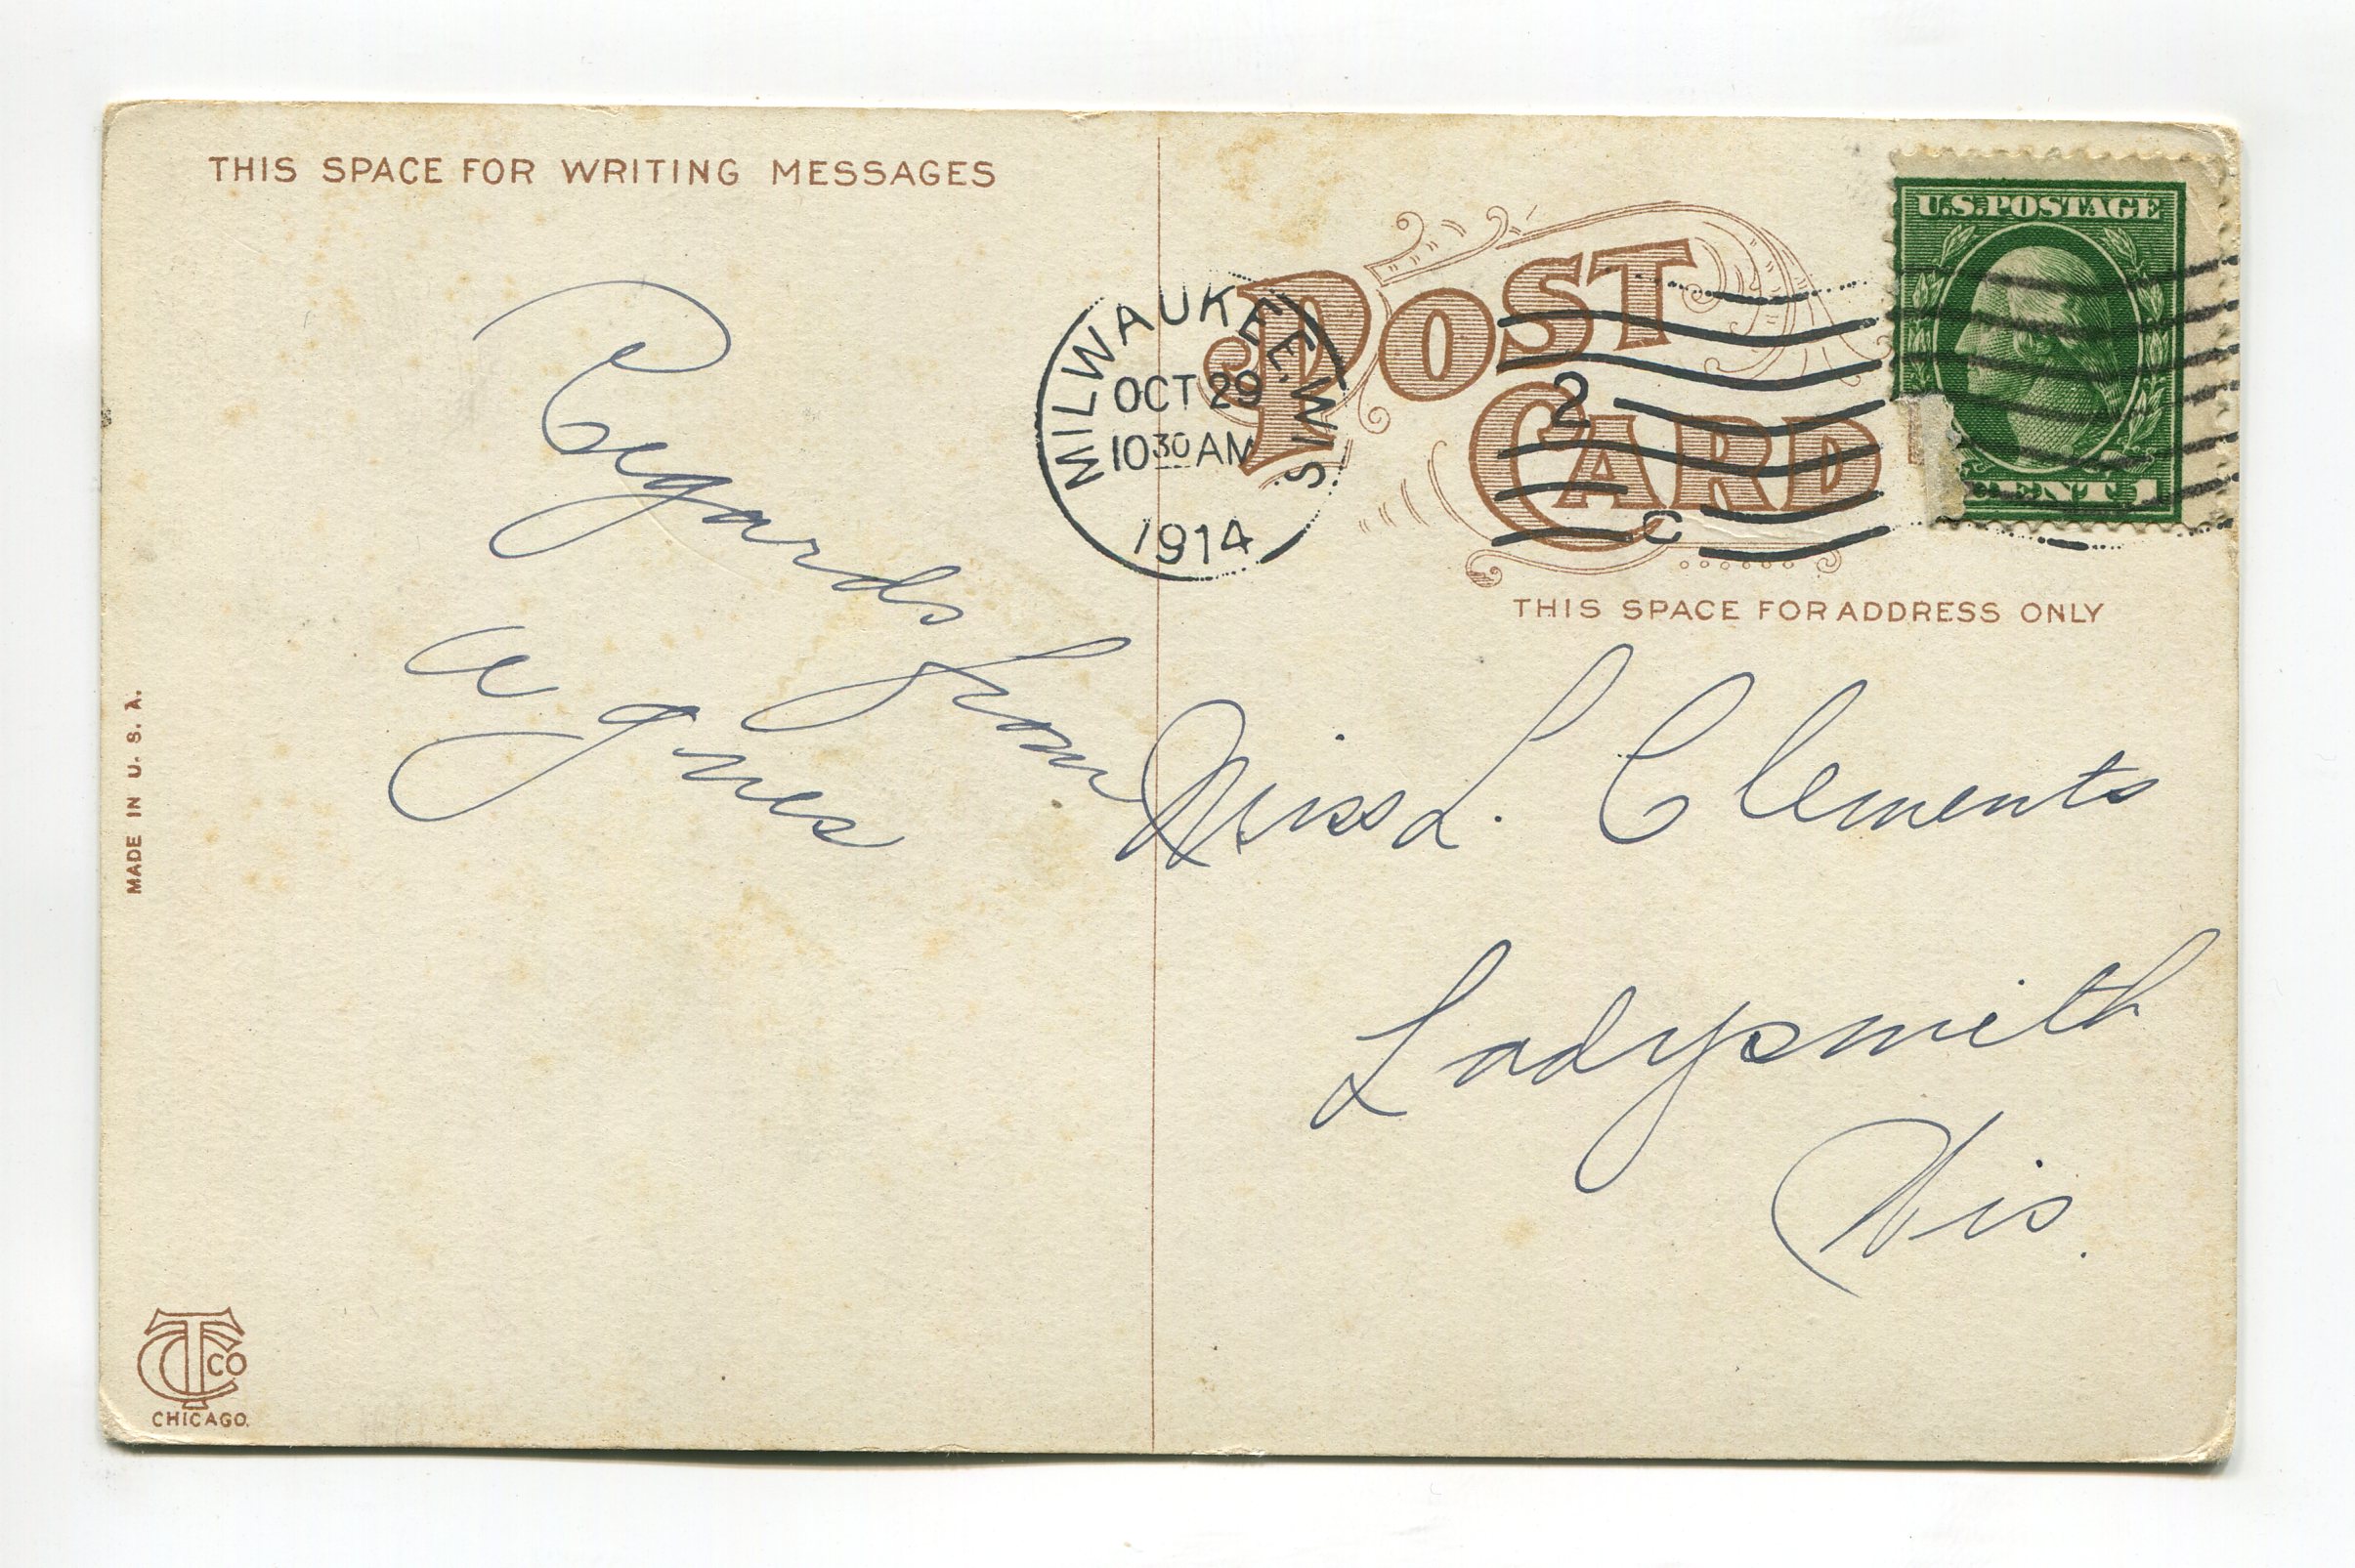 THIS SPACE FOR WRITING MESSAGES
Regards from
Agnes
MADE IN U. S. A.
CTCO
CHICAGO.
MILWAUKEE, WIS.
OCT 29
10 30 AM
1914
POST
CARD
2
C
U.S. POSTAGE
CENT 1
THIS SPACE FOR ADDRESS ONLY
Miss L. Clements
Ladysmith
Wis.